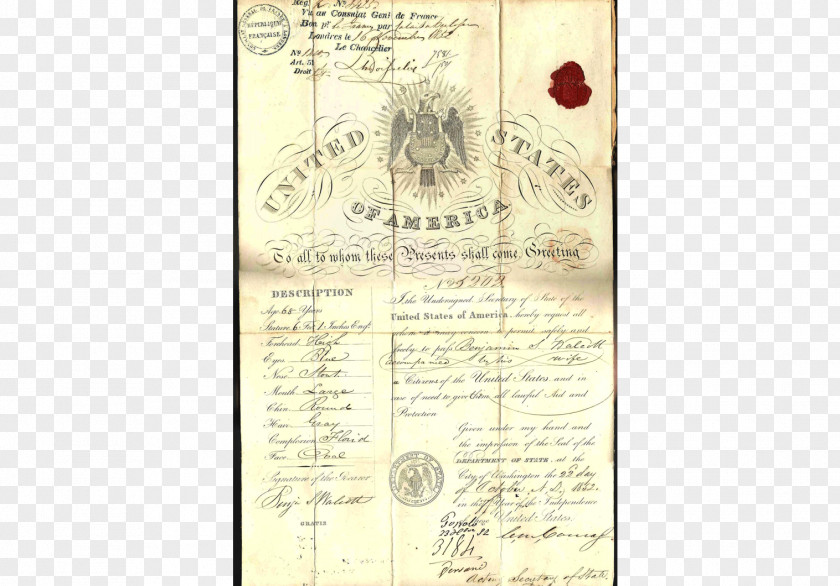 RÉPUBLIQUE
FRANÇAISE
Vu au Consulat Genl de France
Londres le 16 Novembre 1852
Le Chancelier
Art. 51
Droit
UNITED STATES
OF AMERICA
To all to whom these Presents shall come, Greeting
No 5202
DESCRIPTION
Age, 68 Years
Stature, 6 Feet, 1 Inches Engl.
Forehead High
Eyes Blue
Nose Stout
Mouth Large
Chin Round
Hair Gray
Complexion Florid
Face Oval
Signature of the Bearer
Benj S Walcott
GRATIS
I, the Undersigned, Secretary of State of the
United States of America, hereby request all
whom it may concern to permit safely and
freely to pass Benjamin S. Walcott
accompanied by his wife
a Citizen of the United States, and in
case of need to give them all lawful Aid and
Protection
Given under my hand and
the impression of the Seal of the
DEPARTMENT OF STATE, at the
City of Washington the 22d day
of October A.D. 1852
in the Year of the Independence
of these United States.
3184
Acting Secretary of State.